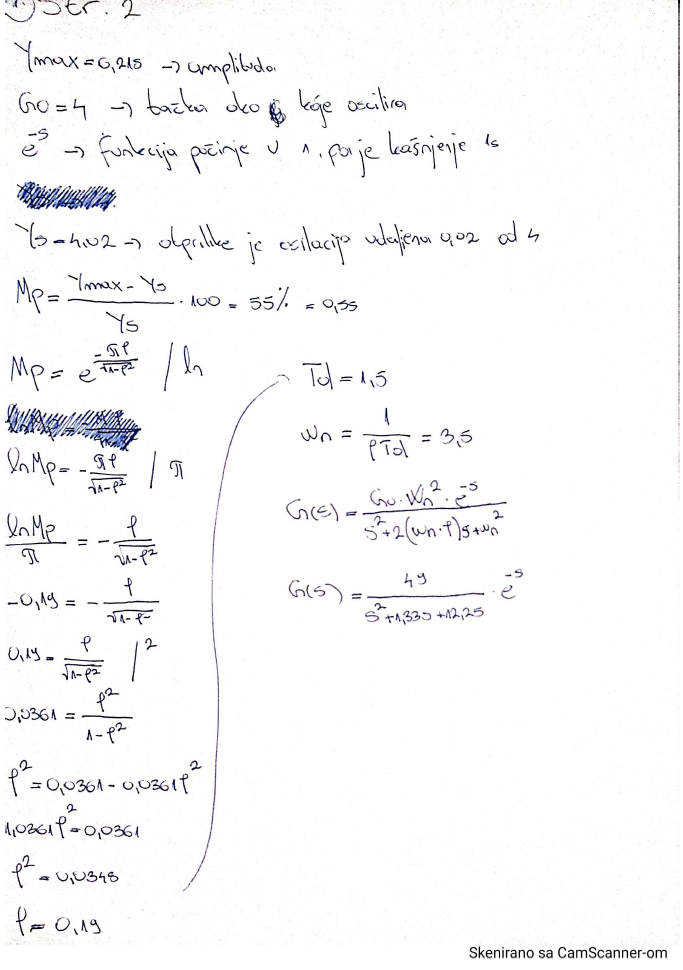 1) Str. 2
Ymax = 6,215 → amplituda
G0 = 4 → tačka oko koje oscilira
e^-s → funkcija počinje u 1. pa je kašnjenje 1s
Ys = 4,02 → otprilike je oscilacija udaljena 0,02 od 4
Mp = (Ymax - Ys)/Ys · 100 = 55% = 0,55
Mp = e^(-πρ/√(1-ρ²)) / ln
ln Mp = - πρ/√(1-ρ²) | π
ln Mp/π = - ρ/√(1-ρ²)
-0,19 = - ρ/√(1-ρ²)
0,19 = ρ/√(1-ρ²) |²
0,0361 = ρ²/(1-ρ²)
ρ² = 0,0361 - 0,0361ρ²
1,0361ρ² = 0,0361
ρ² = 0,0348
ρ = 0,19
Td = 1,5
wn = 1/(ρTd) = 3,5
G(s) = (G0 · Wn² · e^-s)/(s² + 2(wn·ρ)s + wn²)
G(s) = 49/(s² + 1,33s + 12,25) · e^-s
Skenirano sa CamScanner-om